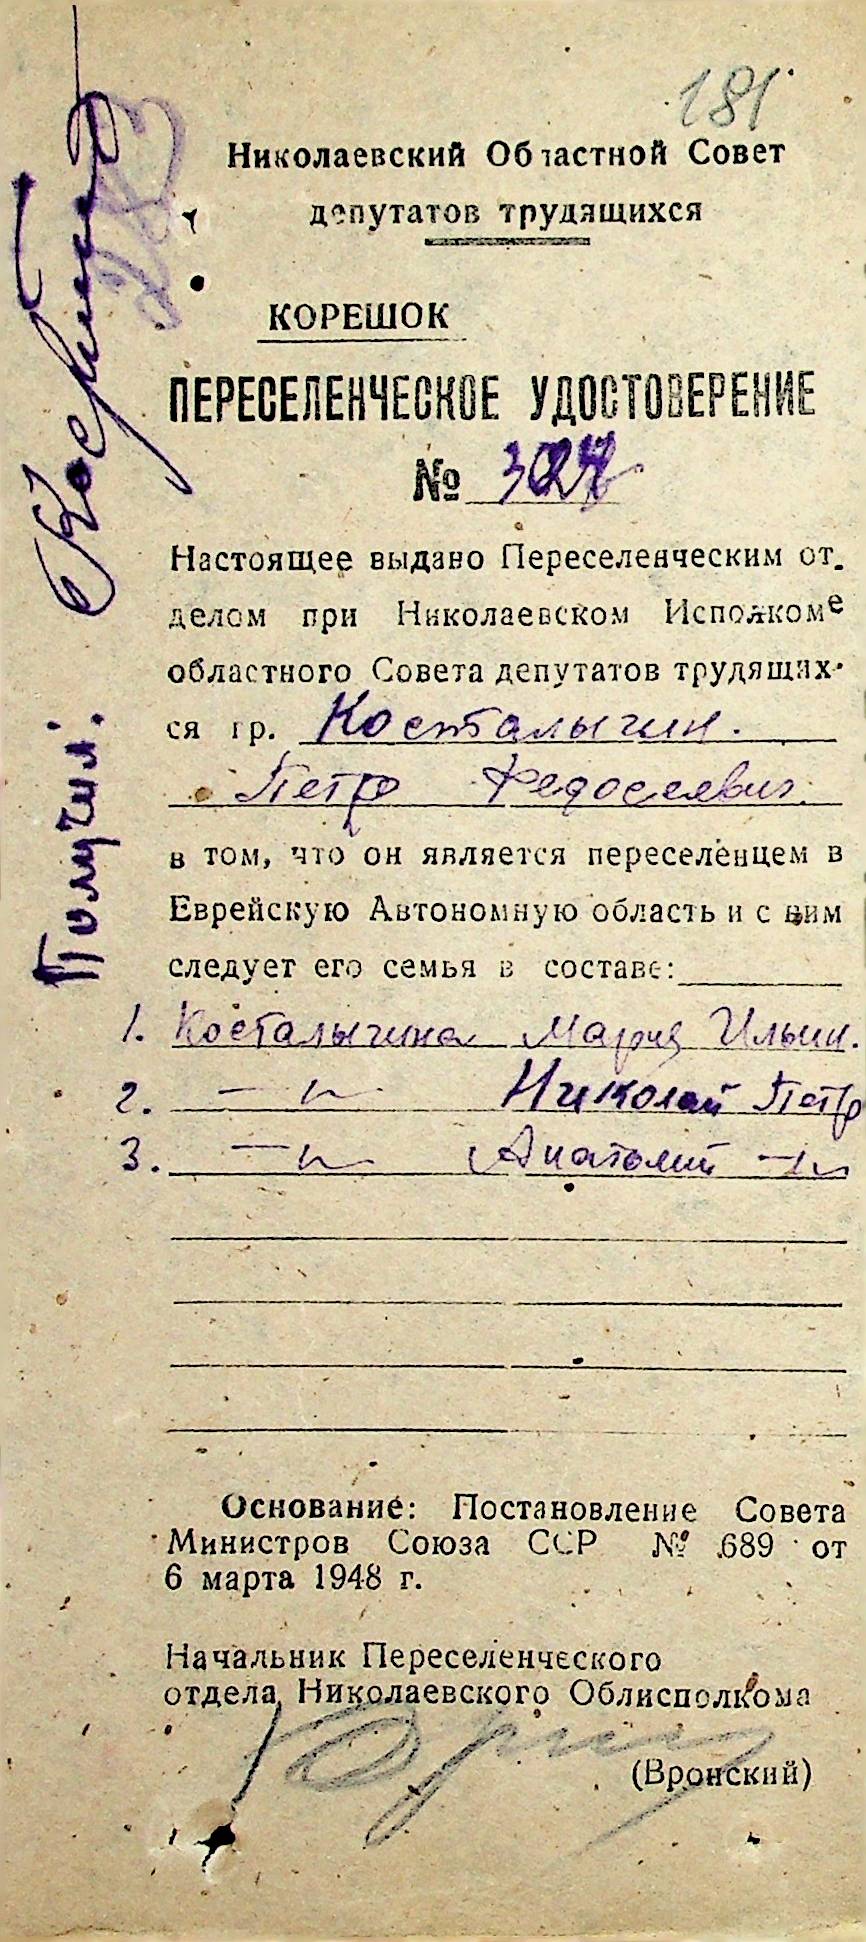 181
Николаевский Областной Совет
депутатов трудящихся
КОРЕШОК
ПЕРЕСЕЛЕНЧЕСКОЕ УДОСТОВЕРЕНИЕ
№
Настоящее выдано Переселенческим от.
делом при Николаевском Исполкоме
областного Совета депутатов трудящих-
ся гр. Косталыгин.
Петр Федосеевич.
в том, что он является переселенцем в
Еврейскую Автономную область и с ним
следует его семья в составе:
1. Косталыгина Мария Ильин.
2. —"— Николай Петр
3. —"— Анатолий —"—
Основание: Постановление Совета
Министров Союза ССР № 689 от
6 марта 1948 г.
Начальник Переселенческого
отдела Николаевского Облисполкома
(Вронский)
Получил.